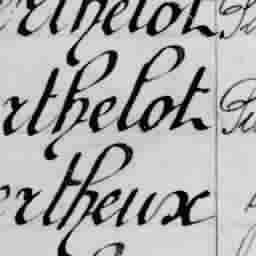 erthelot
rthelot
ertheux